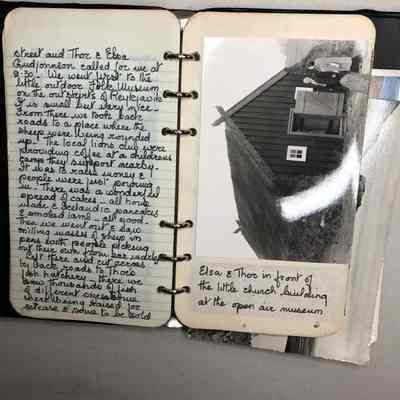 street and Thor & Elsa
Gudjonnson called for me at
9.30. We went first to the
little outdoor Folk Museum
on the outskirts of Reykjavik
It is small but very nice.
From there we took back
roads to a place where the
sheep were being rounded
up. The local lions club were
providing coffee at a childrens
camp they support nearby.
It was to raise money &
people were just pouring
in. There was a wonderful
spread of cakes - all home
made & Icelandic pancakes
& smoked lamb - all good.
Then we went out & saw
milling masses of sheep in
pens with people picking
out their own from ear
left there and cut across
to back roads to Thor's
fish hatchery. there we
saw thousands of fish
of different sizes
were being raised for
release & some to be sold
Elsa & Thor in front of
the little church building
at the open air museum